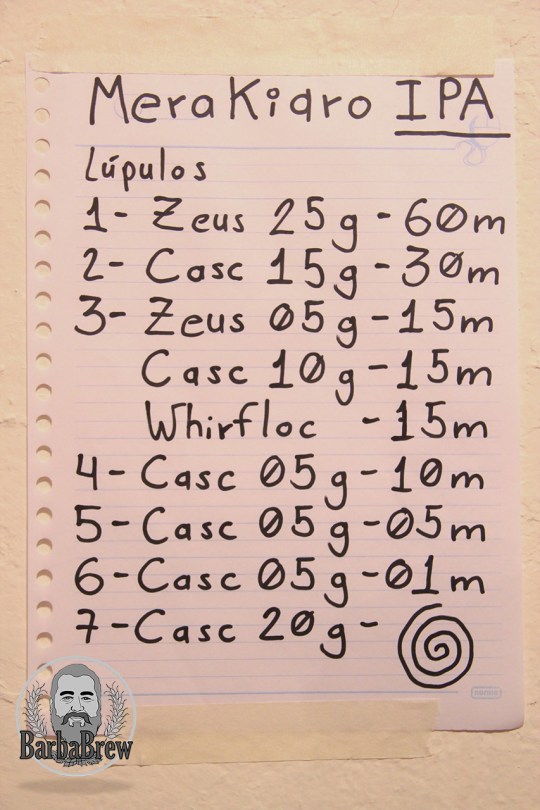 MeraKiaro IPA
Lúpulos
1- Zeus 25g - 60m
2- Casc 15g - 30m
3- Zeus 05g - 15m
Casc 10g - 15m
Whirfloc - 15m
4- Casc 05g - 10m
5- Casc 05g - 05m
6- Casc 05g - 01m
7- Casc 20g -
BarbaBrew